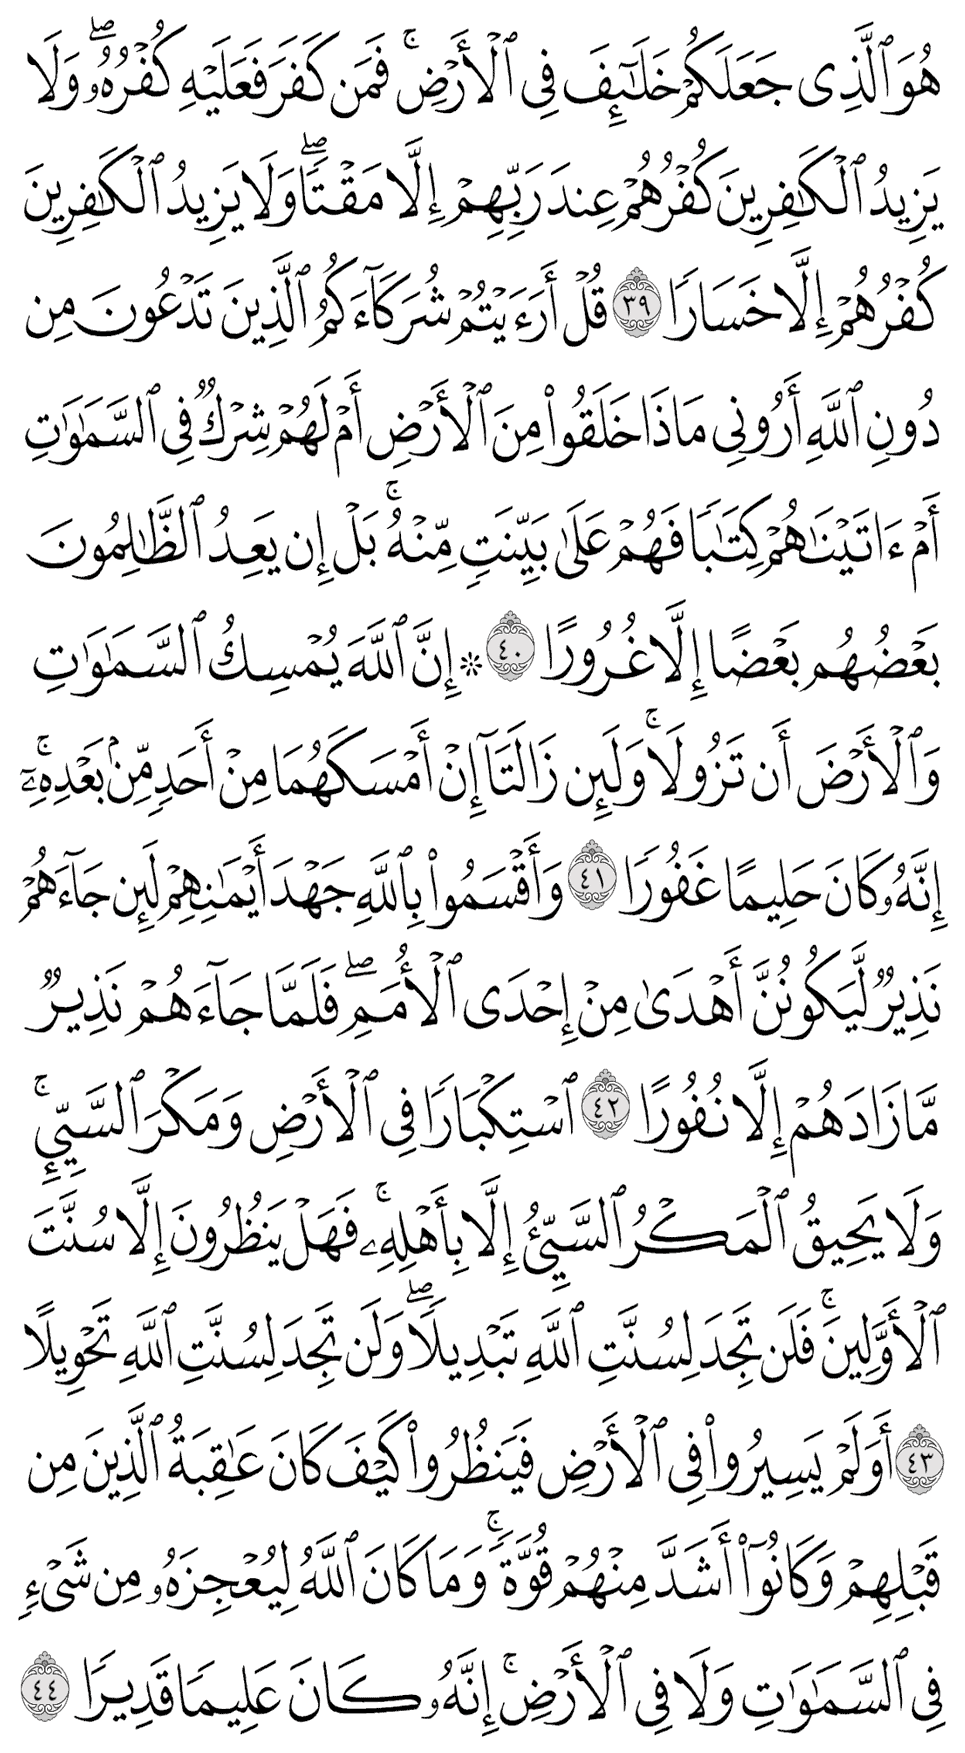 هُوَ ٱلَّذِى جَعَلَكُمْ خَلَـٰٓئِفَ فِى ٱلْأَرْضِ ۚ فَمَن كَفَرَ فَعَلَيْهِ كُفْرُهُۥ ۖ وَلَا
يَزِيدُ ٱلْكَـٰفِرِينَ كُفْرُهُمْ عِندَ رَبِّهِمْ إِلَّا مَقْتًا ۖ وَلَا يَزِيدُ ٱلْكَـٰفِرِينَ
كُفْرُهُمْ إِلَّا خَسَارًا ٣٩ قُلْ أَرَءَيْتُمْ شُرَكَآءَكُمُ ٱلَّذِينَ تَدْعُونَ مِن
دُونِ ٱللَّهِ أَرُونِى مَاذَا خَلَقُوا۟ مِنَ ٱلْأَرْضِ أَمْ لَهُمْ شِرْكٌ فِى ٱلسَّمَـٰوَٰتِ
أَمْ ءَاتَيْنَـٰهُمْ كِتَـٰبًا فَهُمْ عَلَىٰ بَيِّنَتٍ مِّنْهُ ۚ بَلْ إِن يَعِدُ ٱلظَّـٰلِمُونَ
بَعْضُهُم بَعْضًا إِلَّا غُرُورًا ٤٠ ۞ إِنَّ ٱللَّهَ يُمْسِكُ ٱلسَّمَـٰوَٰتِ
وَٱلْأَرْضَ أَن تَزُولَا ۚ وَلَئِن زَالَتَآ إِنْ أَمْسَكَهُمَا مِنْ أَحَدٍ مِّنۢ بَعْدِهِۦٓ ۚ
إِنَّهُۥ كَانَ حَلِيمًا غَفُورًا ٤١ وَأَقْسَمُوا۟ بِٱللَّهِ جَهْدَ أَيْمَـٰنِهِمْ لَئِن جَآءَهُمْ
نَذِيرٌ لَّيَكُونُنَّ أَهْدَىٰ مِنْ إِحْدَى ٱلْأُمَمِ ۖ فَلَمَّا جَآءَهُمْ نَذِيرٌ
مَّا زَادَهُمْ إِلَّا نُفُورًا ٤٢ ٱسْتِكْبَارًا فِى ٱلْأَرْضِ وَمَكْرَ ٱلسَّيِّئِ ۚ
وَلَا يَحِيقُ ٱلْمَكْرُ ٱلسَّيِّئُ إِلَّا بِأَهْلِهِۦ ۚ فَهَلْ يَنظُرُونَ إِلَّا سُنَّتَ
ٱلْأَوَّلِينَ ۚ فَلَن تَجِدَ لِسُنَّتِ ٱللَّهِ تَبْدِيلًا ۖ وَلَن تَجِدَ لِسُنَّتِ ٱللَّهِ تَحْوِيلًا
٤٣ أَوَلَمْ يَسِيرُوا۟ فِى ٱلْأَرْضِ فَيَنظُرُوا۟ كَيْفَ كَانَ عَـٰقِبَةُ ٱلَّذِينَ مِن
قَبْلِهِمْ وَكَانُوٓا۟ أَشَدَّ مِنْهُمْ قُوَّةً ۚ وَمَا كَانَ ٱللَّهُ لِيُعْجِزَهُۥ مِن شَىْءٍ
فِى ٱلسَّمَـٰوَٰتِ وَلَا فِى ٱلْأَرْضِ ۚ إِنَّهُۥ كَانَ عَلِيمًا قَدِيرًا ٤٤